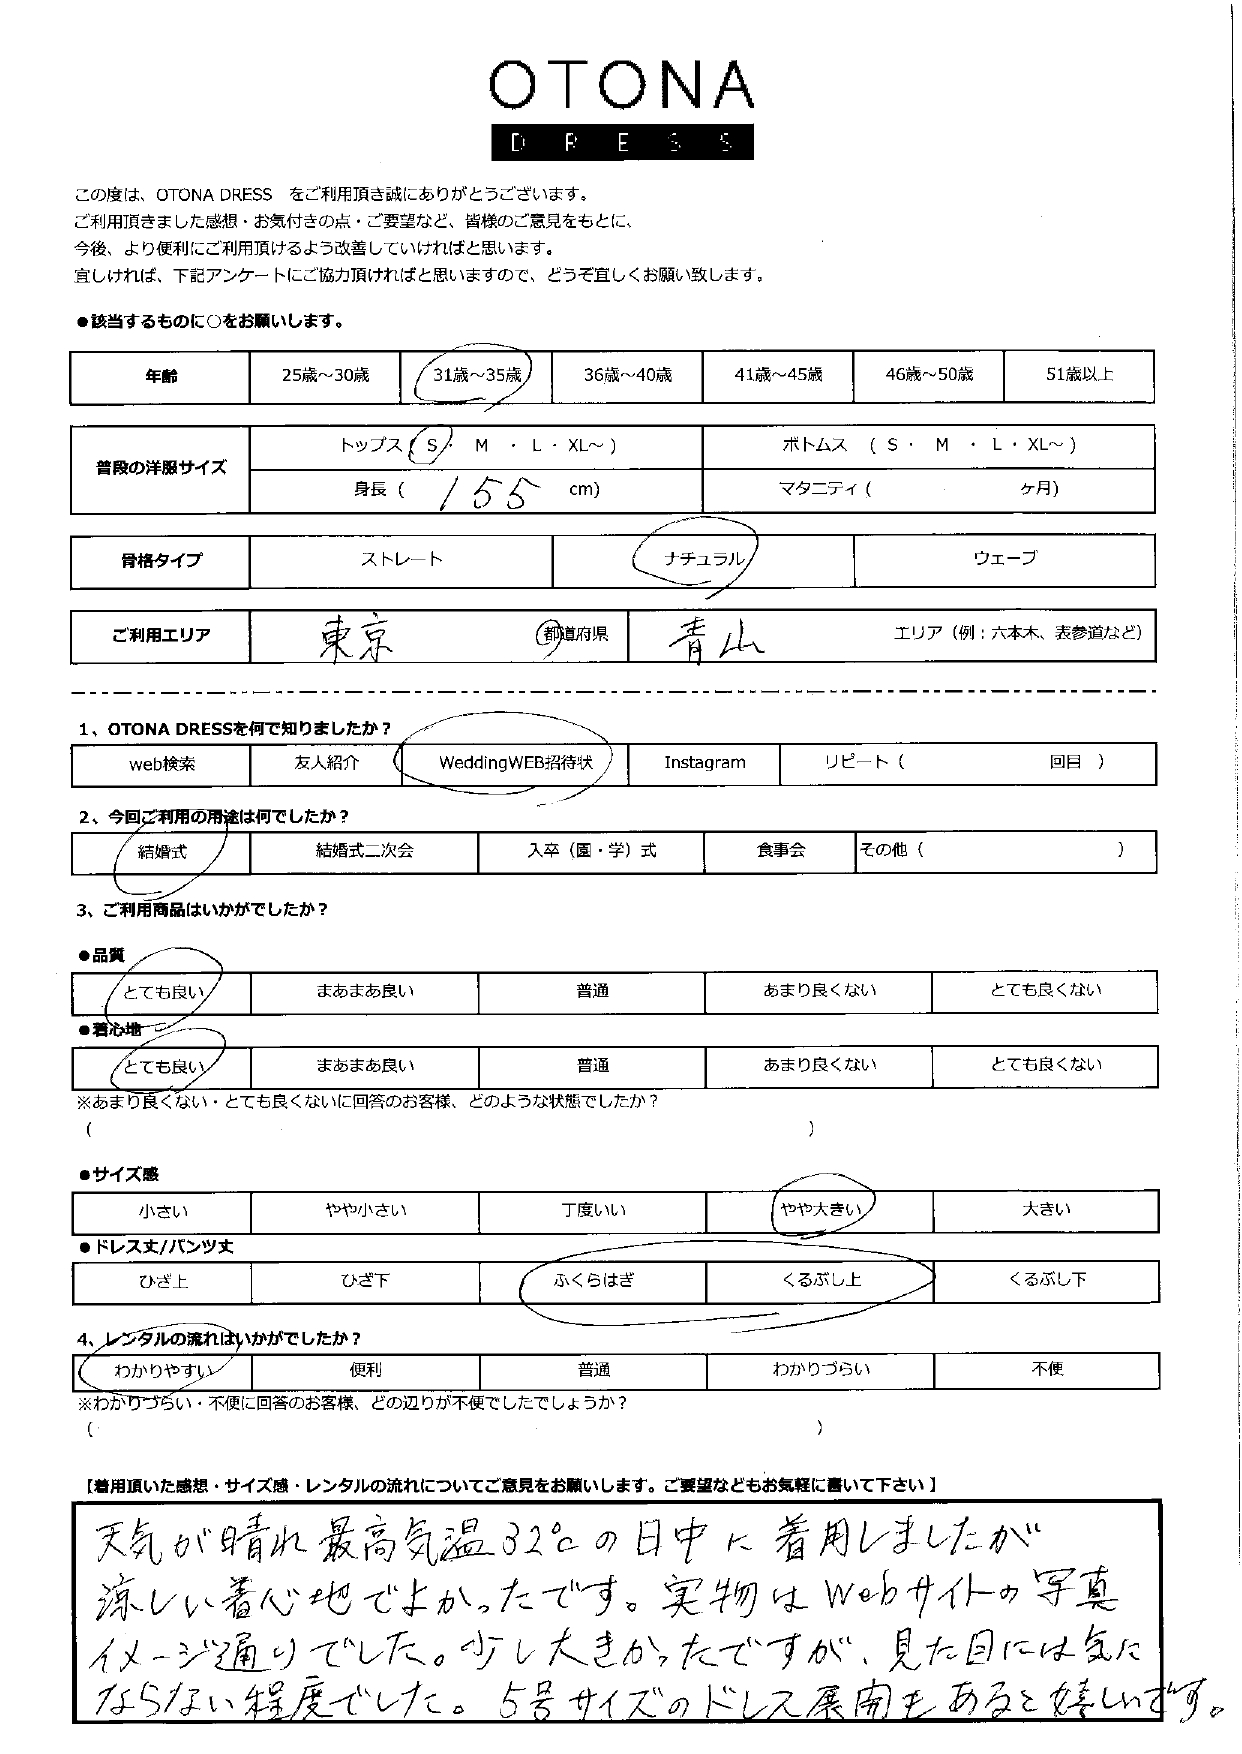 OTONA
DRESS
この度は、OTONA DRESS　をご利用頂き誠にありがとうございます。
ご利用頂きました感想・お気付きの点・ご要望など、皆様のご意見をもとに、
今後、より便利にご利用頂けるよう改善していければと思います。
宜しければ、下記アンケートにご協力頂ければと思いますので、どうぞ宜しくお願い致します。
●該当するものに○をお願いします。
年齢 25歳～30歳 31歳～35歳 36歳～40歳 41歳～45歳 46歳～50歳 51歳以上
普段の洋服サイズ トップス ( S ・ M ・ L ・ XL～ ) ボトムス ( S ・ M ・ L ・ XL～ )
身長 ( 155 cm) マタニティ ( ケ月)
骨格タイプ ストレート ナチュラル ウェーブ
ご利用エリア 東京 都道府県 青山 エリア（例：六本木、表参道など）
1、OTONA DRESSを何で知りましたか？
web検索 友人紹介 WeddingWEB招待状 Instagram リピート（ 回目 ）
2、今回ご利用の用途は何でしたか？
結婚式 結婚式二次会 入卒（園・学）式 食事会 その他（ ）
3、ご利用商品はいかがでしたか？
●品質
とても良い まあまあ良い 普通 あまり良くない とても良くない
●着心地
とても良い まあまあ良い 普通 あまり良くない とても良くない
※あまり良くない・とても良くないに回答のお客様、どのような状態でしたか？
( )
●サイズ感
小さい やや小さい 丁度いい やや大きい 大きい
●ドレス丈/パンツ丈
ひざ上 ひざ下 ふくらはぎ くるぶし上 くるぶし下
4、レンタルの流れはいかがでしたか？
わかりやすい 便利 普通 わかりづらい 不便
※わかりづらい・不便に回答のお客様、どの辺りが不便でしたでしょうか？
( )
【着用頂いた感想・サイズ感・レンタルの流れについてご意見をお願いします。ご要望などもお気軽に書いて下さい】
天気が晴れ最高気温32℃の日中に着用しましたが
涼しい着心地でよかったです。実物はWebサイトの写真
イメージ通りでした。少し大きかったですが、見た目には気に
ならない程度でした。5号サイズのドレス展開もあると嬉しいです。